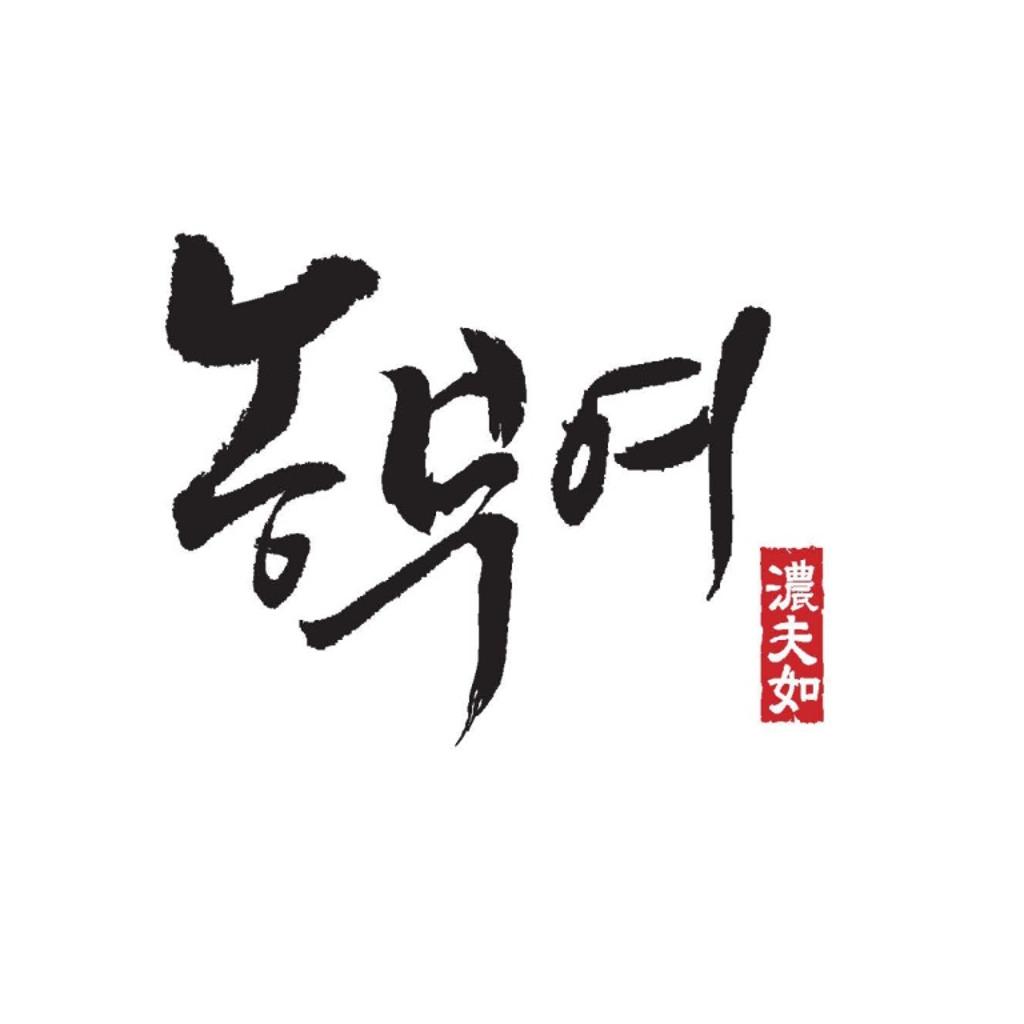 농부여
濃夫如